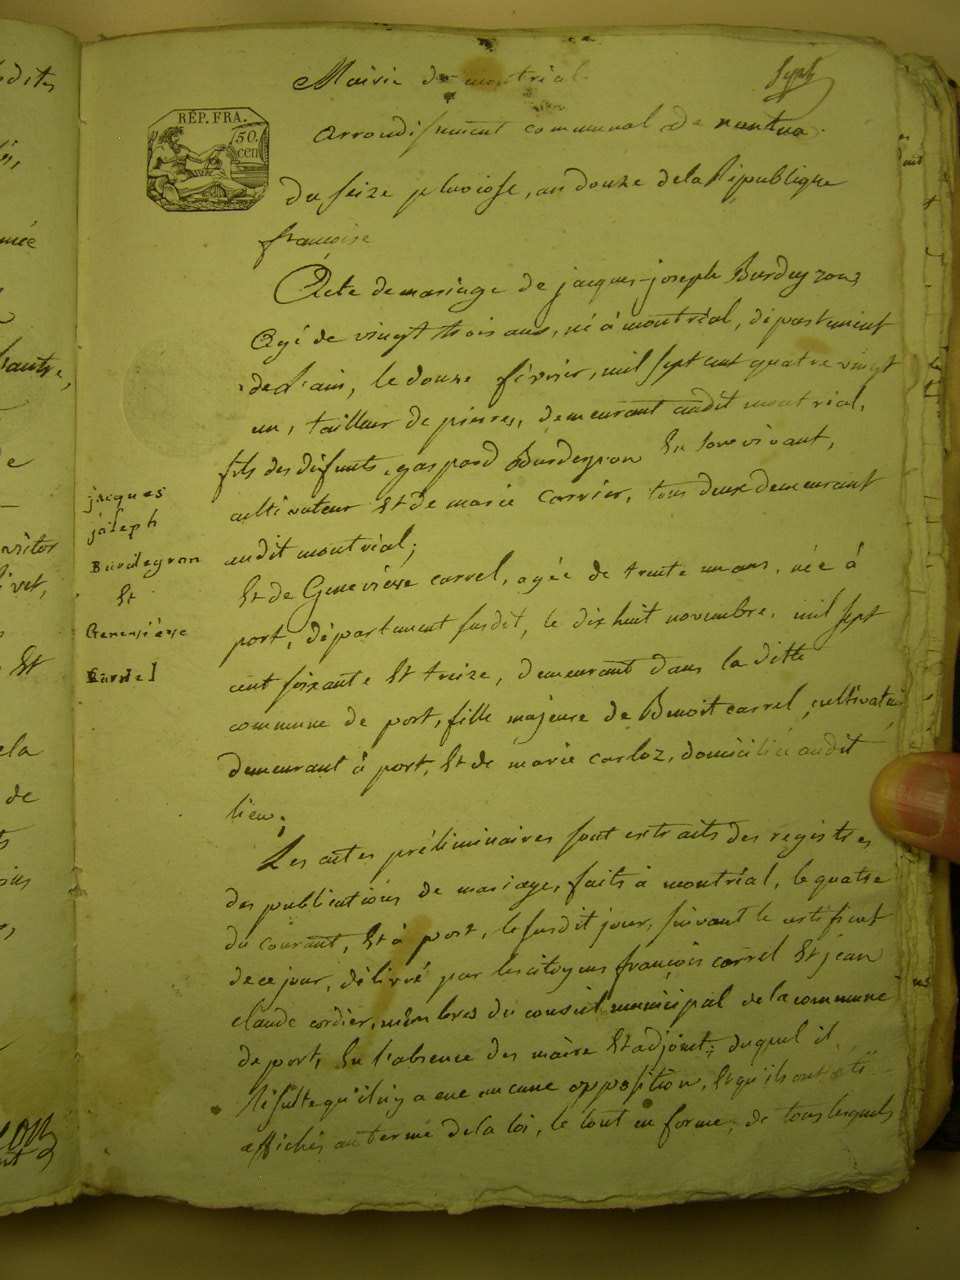 Mairie de montrial
Sept
RÉP. FRA.
50
cen
arrondissement communal de nantua.
du seize pluviose, an douze de la République
françoise
Acte de mariage de jacques-joseph Burdeyron,
agé de vingt trois ans, né à montréal, département
de l'ain, le douze février, mil sept cent quatre vingt
un, tailleur de pierres, demeurant audit montréal,
fils des défunts, gaspard Burdeyron En son vivant,
cultivateur Et de marie carrier, tous deux demeurant
audit montréal;
Et de Geneviève carrel, agée de trente un ans, née à
port, département susdit, le dix huit novembre, mil sept
cent soixante Et treize, demeurant dans la ditte
commune de port, fille majeure de Benoit carrel, cultivateur
demeurant à port, Et de marie carloz, domiciliée audit
lieu;
jacques
joseph
Burdeyron
Et
Genevieve
Les actes préliminaires sont extraits des registres
des publications de mariage, faits à montréal, le quatre
du courant, Et à port, le susdit jour, suivant le certificat
de ce jour, délivré par les citoyens françois carrel Et jean
claude cordier, membres du conseil municipal de la commune
de port, En l'absence des maire Et adjoint; duquel il
Résulte qu'il n'y a eue aucune opposition, Et qu'ils ont été
affichés au terme de la loi, le tout en forme; de tous lesquels